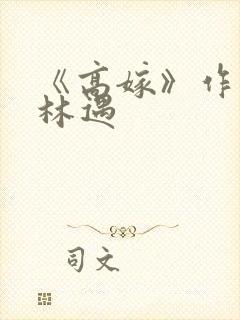 《高嫁》作
林遇
司文